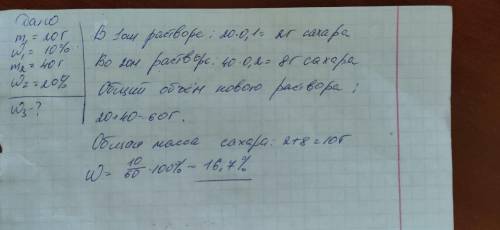 Дано
m₁ = 20г
W₁ = 10%
m₂ = 40г
W₂ = 20%
W₃ - ?
В 1ом растворе: 20·0,1 = 2г сахара
Во 2ом растворе: 40·0,2 = 8г сахара
Общий объём нового раствора:
20+40=60г.
Общая масса сахара: 2+8=10г
W = 10/60 · 100% = 16,7%